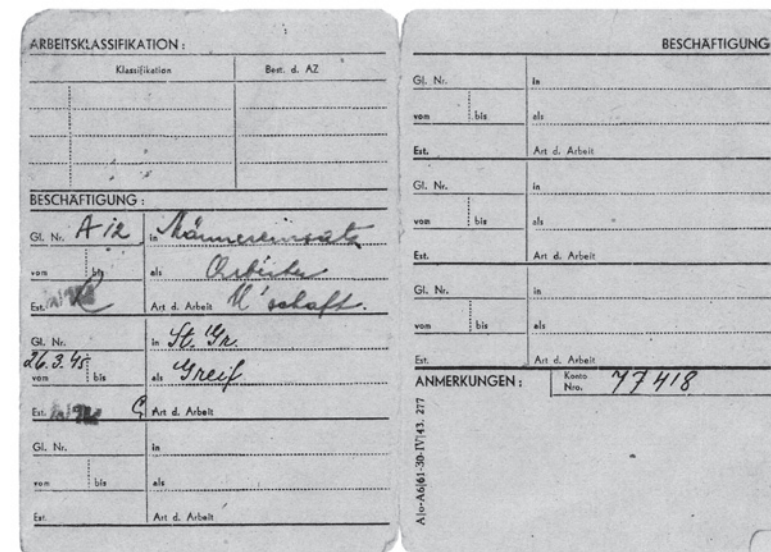 ARBEITSKLASSIFIKATION :
Klassifikation Best. d. AZ
BESCHÄFTIGUNG :
Gl. Nr. A 12 in Männereinsatz
vom bis als Arbeiter
Est. Art d. Arbeit U'schaft.
Gl. Nr. in St. Gr.
26.3.45
vom bis als Greif
Est. Art d. Arbeit
Gl. Nr. in
vom bis als
Est. Art d. Arbeit
BESCHÄFTIGUNG
Gl. Nr. in
vom bis als
Est. Art d. Arbeit
Gl. Nr. in
vom bis als
Est. Art d. Arbeit
Gl. Nr. in
vom bis als
Est. Art d. Arbeit
ANMERKUNGEN : Konto Nro. 77418
A|o-A6|61-30-IV|43. 277